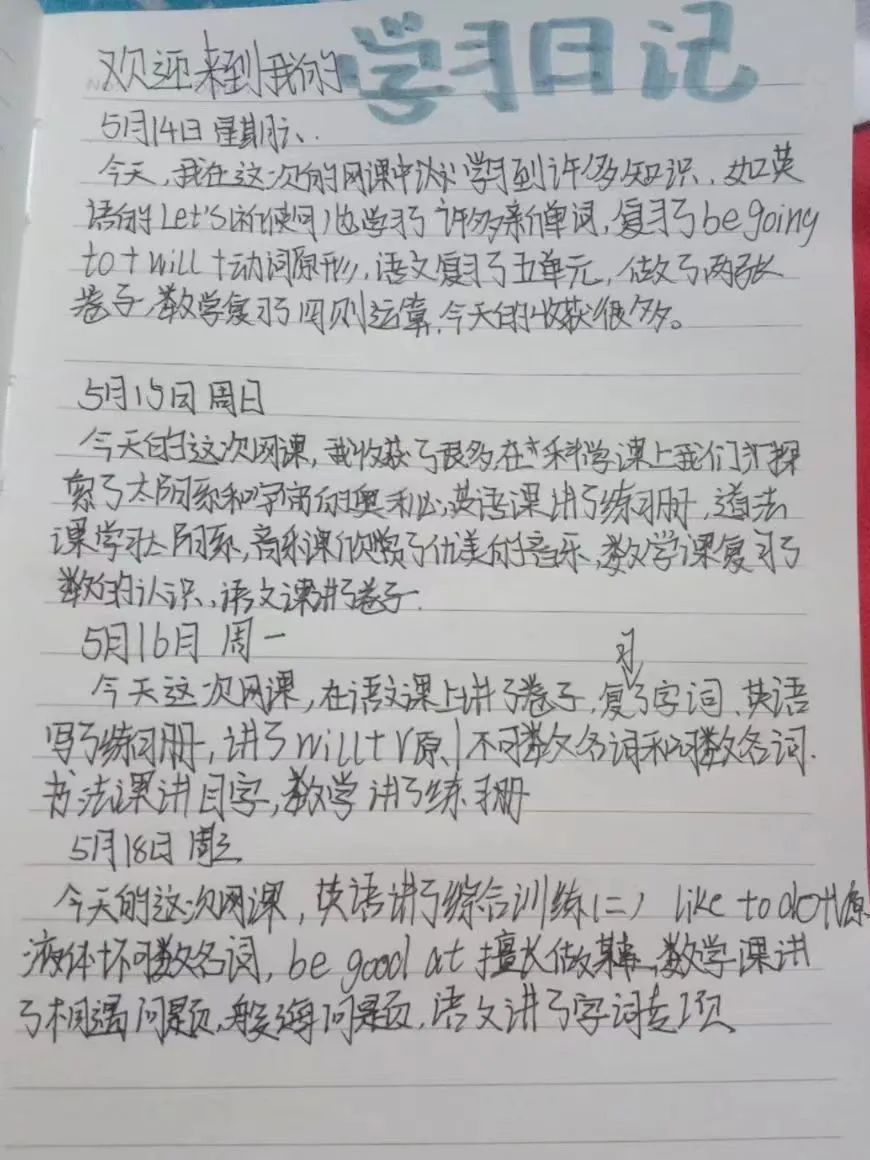 欢迎来到我的学习日记
5月14日 星期六
今天,我在这次的网课中学习到许多知识,如英
语的Let's的使同,也学习了许多新单词,复习了be going
to+will+动词原形,语文复习了五单元,做了两张
卷子,数学复习了四则运算,今天的收获很多。
5月15日周日
今天的这次网课,我收获了很多在科学课上我们探
索了太阳系和宇宙的奥秘,英语课讲了练习册,道法
课学习太阳系,音乐课欣赏了优美的音乐,数学课复习了
数的认识,语文课讲了卷子.
5月16月 周一
今天这次网课,在语文课上讲了卷子,复习了字词、英语
写了练习册,讲了will+V原,不可数名词和可数名词.
书法课讲目字,数学讲了练习册
5月18日 周三
今天的这次网课,英语讲了综合训练(二) like to do+原
液体不可数名词,be good at擅长做某事,数学课讲
了相遇问题,问题,语文讲了字词专项